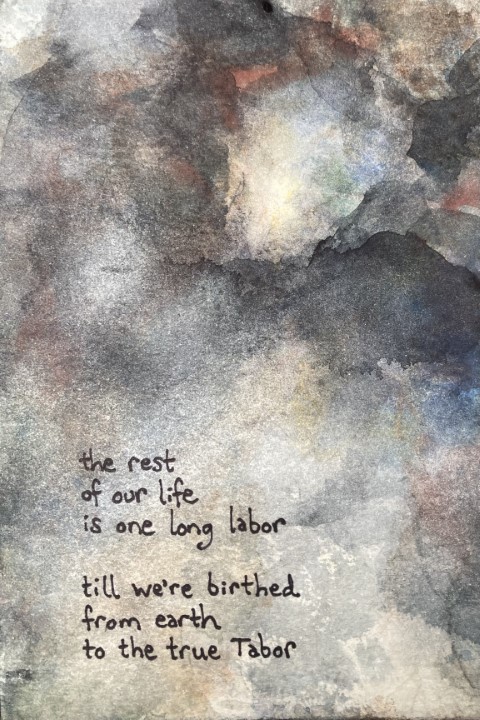 the rest
of our life
is one long labor
till we're birthed
from earth
to the true Tabor